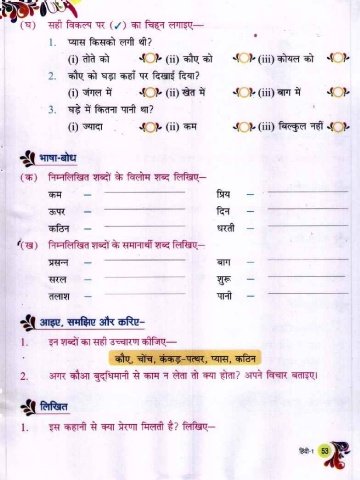 (घ) सही विकल्प पर (✓) का चिह्न लगाइए—
1. प्यास किसको लगी थी?
(i) तोते को (ii) कौए को (iii) कोयल को
2. कौए को घड़ा कहाँ पर दिखाई दिया?
(i) जंगल में (ii) खेत में (iii) बाग में
3. घड़े में कितना पानी था?
(i) ज्यादा (ii) कम (iii) बिल्कुल नहीं
भाषा-बोध
(क) निम्नलिखित शब्दों के विलोम शब्द लिखिए—
कम – प्रिय –
ऊपर – दिन –
कठिन – धरती –
(ख) निम्नलिखित शब्दों के समानार्थी शब्द लिखिए—
प्रसन्न – बाग –
सरल – शुरू –
तलाश – पानी –
आइए, समझिए और करिए–
1. इन शब्दों का सही उच्चारण कीजिए—
कौए, चोंच, कंकड़-पत्थर, प्यास, कठिन
2. अगर कौआ बुद्धिमानी से काम न लेता तो क्या होता? अपने विचार बताइए।
लिखित
1. इस कहानी से क्या प्रेरणा मिलती है? लिखिए—
हिंदी-1 53